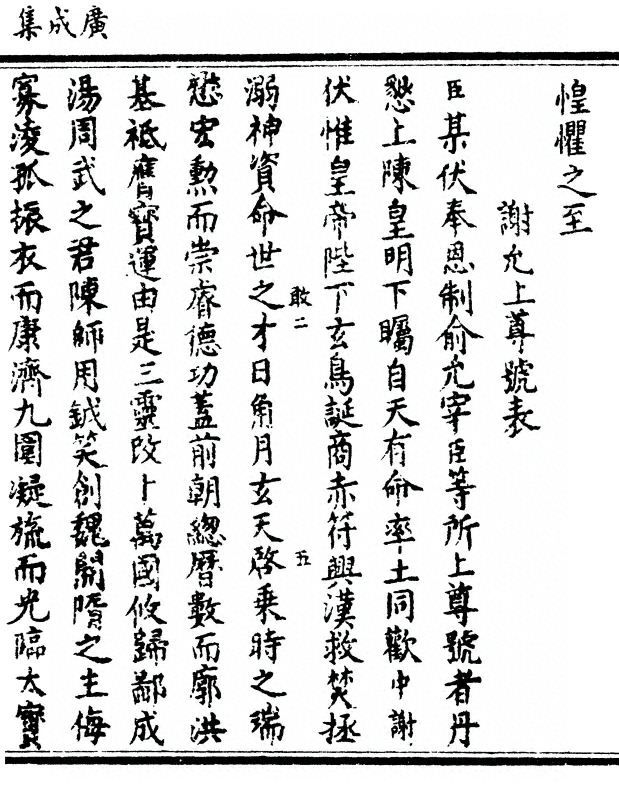 廣成集
惶懼之至
謝允上尊號表
臣某伏奉恩制俞允宰臣等所上尊號者丹
懇上陳皇明下矚自天有命率土同歡中謝
伏惟皇帝陛下玄鳥誕商赤符興漢救焚拯
溺神資命世之才日角月玄天啓乘時之瑞
敢二
五
懋宏勲而崇睿德功蓋前朝總曆數而廓洪
基祗膺寶運由是三靈改卜萬國攸歸鄙成
湯周武之君陳師用鉞笑創魏開隋之主侮
寡淩孤振衣而康濟九圍凝旒而光臨大寶